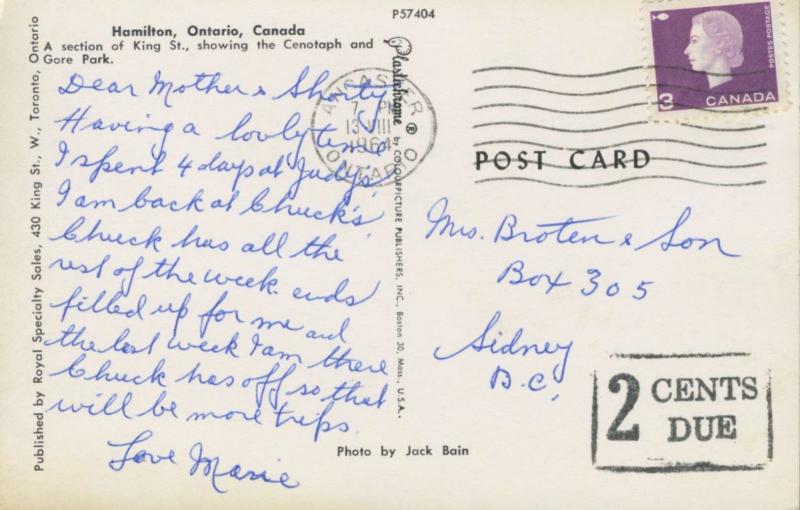 P57404
Hamilton, Ontario, Canada
A section of King St., showing the Cenotaph and
Gore Park.
Published by Royal Specialty Sales, 430 King St., W., Toronto, Ontario
Dear Mother & Shorty
Having a lovly time
I spent 4 days at Judys'
I am back at Chuck's
Chuck has all the
rest of the week ends
filled up for me and
the last week I am there
Chuck has off so that
will be more trips.
Love Marie
Plastichrome ® by COLOURPICTURE PUBLISHERS, INC., Boston 30, Mass., U.S.A.
Photo by Jack Bain
ANCASTER
7 PM
13 VIII
1964
ONTARIO
POSTES POSTAGE
3 CANADA
POST CARD
Mrs. Broten & Son
Box 305
Sidney
B.C.
2 CENTS
DUE